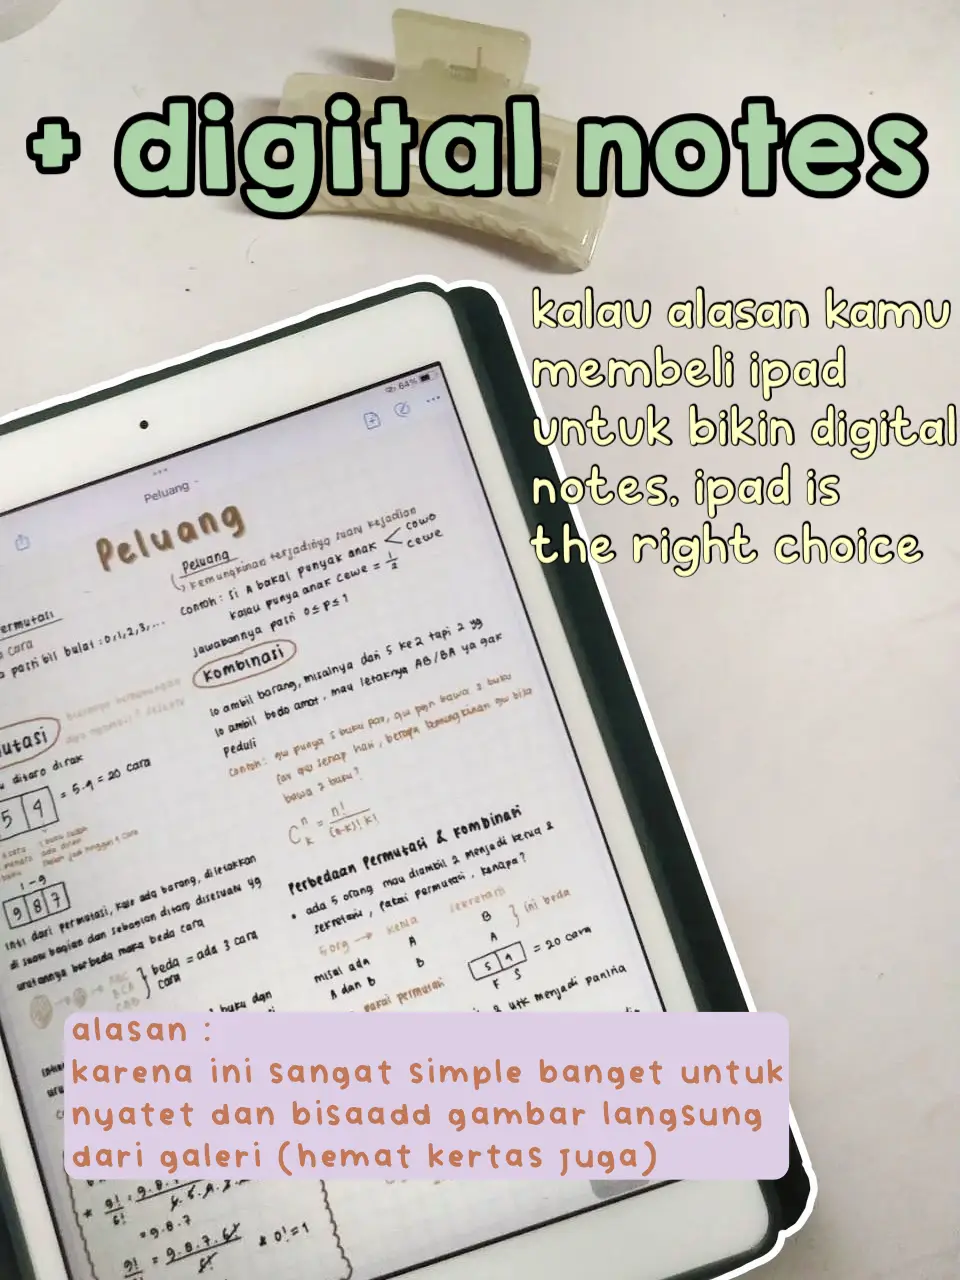 + digital notes
kalau alasan kamu
membeli ipad
untuk bikin digital
notes, ipad is
the right choice
64%
Peluang
Peluang
Peluang
kemungkinan terjadinya suatu kejadian
contoh : si A bakal punyak anak < cowo cewe
kalau punya anak cewe = 1/2
jawabannya pasti 0 ≤ P ≤ 1
ermutasi
cara
pasti bil bulat : 0,1,2,3,...
utasi
ditaro dirak
5 4 = 5.4 = 20 cara
1-9
9 8 7
inti dari permutasi, kalo ada barang, diletakkan
di suatu bagian dan sebagian ditaro disesuain yg
urutannya berbeda maka beda cara
} beda = ada 3 cara
cara
kombinasi
lo ambil barang, misalnya dari 5 ke 2 tapi 2 yg
lo ambil bodo amat, mau letaknya AB/BA ya gak
peduli
contoh : gu punya 5 buku pas, gu pgn bawa 2 buku
for gu setiap hari, berapa kemungkinan gu bisa
bawa 2 buku?
C n k = n! / (n-k)! k!
Perbedaan Permutasi & Kombinasi
• ada 5 orang mau diambil 2 menjadi ketua &
sekretaris, pakai permutasi. kenapa?
5 org → ketua sekretaris
misal ada A B } ini beda
A dan B B A
pakai permutasi
5 4 = 20 cara
K S
2 utk menjadi panitia
buku dan
alasan :
karena ini sangat simple banget untuk
nyatet dan bisaadd gambar langsung
dari galeri (hemat kertas juga)
= 9.8.7
9! / 6! = 9.8.7.6! / 6! * 0! = 1